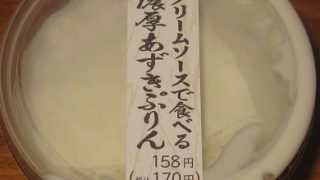 クリームソースで食べる
濃厚あずきぷりん
158円
170円)